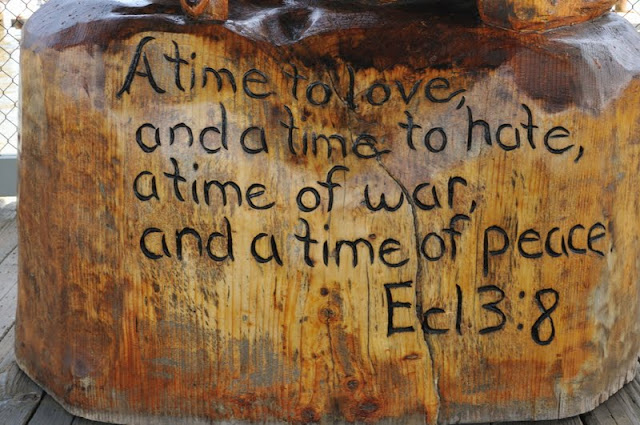 A time to love,
and a time to hate,
a time of war,
and a time of peace.
Ecl 3:8